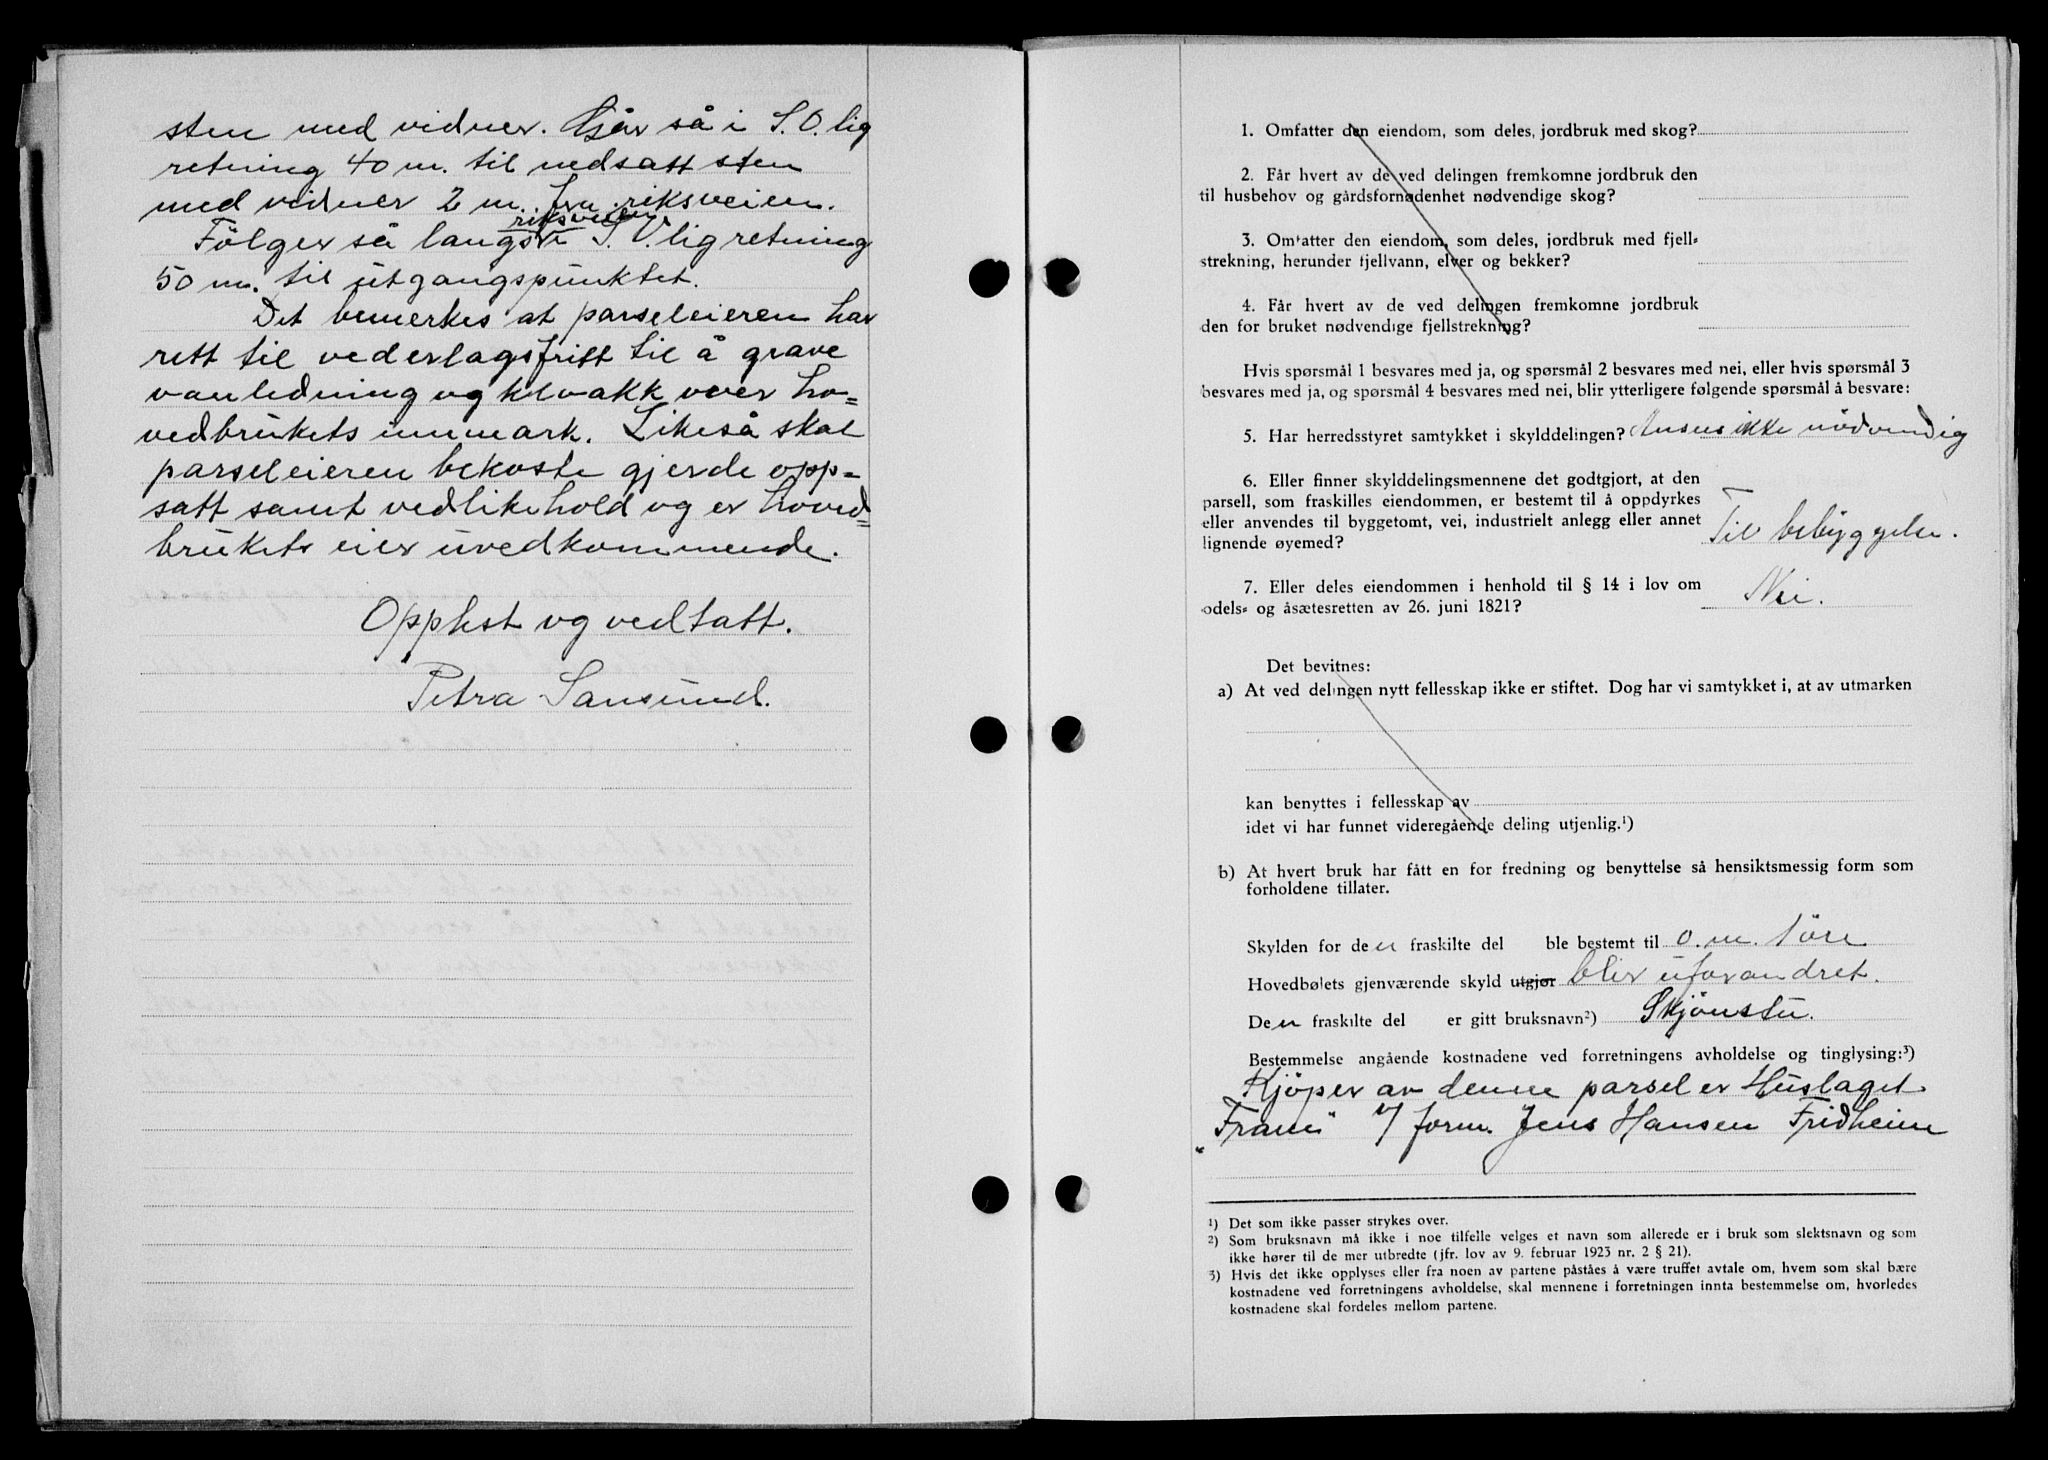 sten med vidner. Gjör så i S.O.lig
retning 40 m. til nedsatt sten
med vidner 2 m. fra riksveien.
riksveien
Fölger så langs i S.V.lig retning
50 m. til utgangspunktet.
Det bemerkes at parseleieren har
rett til vederlagsfritt til å grave
vanledning og kloakk over ho=
vedbrukets innmark. Likeså skal
parseleieren bekoste gjerde opp=
satt samt vedlikehold og er hoved=
brukets eier uvedkommende.
Opplest og vedtatt.
Petra Sansund.
1. Omfatter den eiendom, som deles, jordbruk med skog?
2. Får hvert av de ved delingen fremkomne jordbruk den
til husbehov og gårdsfornødenhet nødvendige skog?
3. Omfatter den eiendom, som deles, jordbruk med fjell=
strekning, herunder fjellvann, elver og bekker?
4. Får hvert av de ved delingen fremkomne jordbruk
den for bruket nødvendige fjellstrekning?
Hvis spørsmål 1 besvares med ja, og spørsmål 2 besvares med nei, eller hvis spørsmål 3
besvares med ja, og spørsmål 4 besvares med nei, blir ytterligere følgende spørsmål å besvare:
5. Har herredsstyret samtykket i skylddelingen? Ansees ikke nödvendig
6. Eller finner skylddelingsmennene det godtgjort, at den
parsell, som fraskilles eiendommen, er bestemt til å oppdyrkes
eller anvendes til byggetomt, vei, industrielt anlegg eller annet
lignende øyemed? Til bebyggelse.
7. Eller deles eiendommen i henhold til § 14 i lov om
odels= og åsætesretten av 26. juni 1821? Nei.
Det bevitnes:
a) At ved delingen nytt fellesskap ikke er stiftet. Dog har vi samtykket i, at av utmarken
kan benyttes i fellesskap av
idet vi har funnet videregående deling utjenlig.¹)
b) At hvert bruk har fått en for fredning og benyttelse så hensiktsmessig form som
forholdene tillater.
Skylden for den fraskilte del ble bestemt til 0. m. 1 öre
Hovedbølets gjenværende skyld utgjør blir uforandret.
Den fraskilte del er gitt bruksnavn²) Skjönstu.
Bestemmelse angående kostnadene ved forretningens avholdelse og tinglysing:³)
Kjöper av denne parsel er Huslaget
"Fram" v/ form. Jens Hansen Fridheim
¹) Det som ikke passer strykes over.
²) Som bruksnavn må ikke i noe tilfelle velges et navn som allerede er i bruk som slektsnavn og som
ikke hører til de mer utbredte (jfr. lov av 9. februar 1923 nr. 2 § 21).
³) Hvis det ikke opplyses eller fra noen av partene påståes å være truffet avtale om, hvem som skal bære
kostnadene ved forretningens avholdelse, skal mennene i forretningen innta bestemmelse om, hvorledes
kostnadene skal fordeles mellom partene.